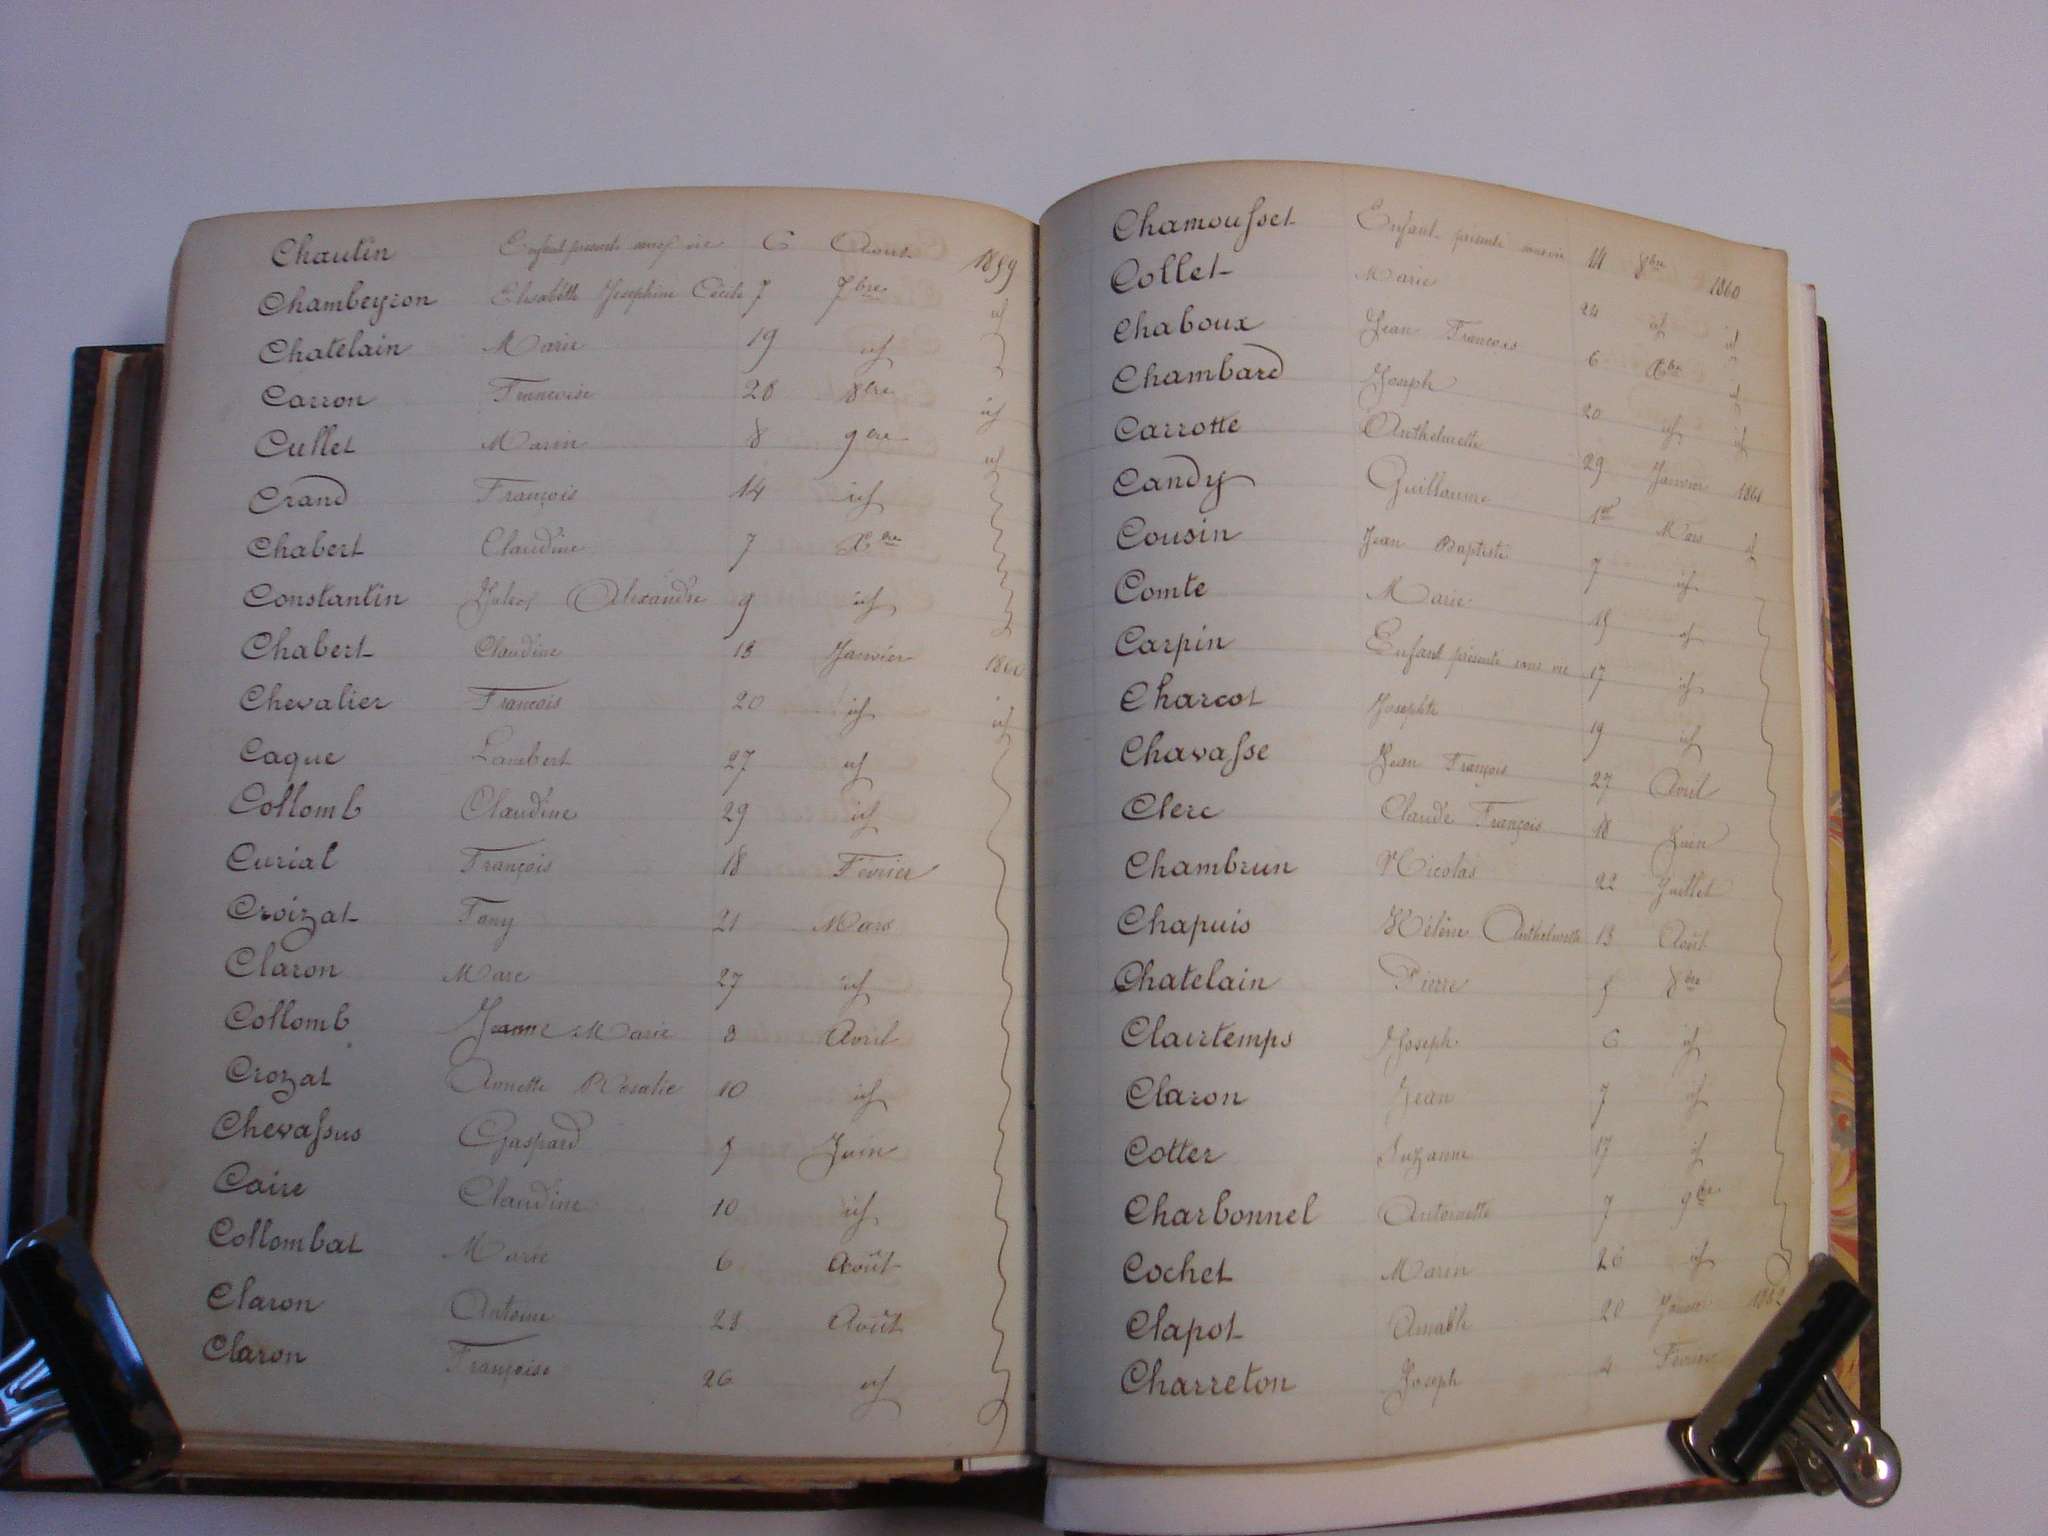 Chautin Enfant présenté sans vie 6 Aout 1859
Chambeyron Elisabeth Josephine Cécile 7 7bre id
Chatelain Marie 19 id
Carron Francoise 28 8bre id
Cullet Marin 8 9bre id
Crand François 14 id
Chabert Claudine 7 Xbre
Constantin Jules Alexandre 9 id
Chabert Claudine 13 Janvier 1860
Chevalier François 20 id id
Caque Lambert 27 id
Collomb Claudine 29 id
Curial François 18 Février
Croizat Fany 21 Mars
Claron Marc 27 id
Collomb Jeanne Marie 3 Avril
Crozat Annette Rosalie 10 id
Chevassus Gaspard 5 Juin
Caire Claudine 10 id
Collombat Marie 6 Août
Claron Antoine 23 Août
Claron Françoise 26 id
Chamousset Enfant présenté sans vie 14 8bre 1860
Collet Marie 24 id id
Chaboux Jean François 6 Xbre id
Chambard Joseph 20 id id
Carrotte Anthelmette 29 Janvier 1861
Candy Guillaume 1er Mars id
Cousin Jean Baptiste 7 id
Comte Marie 15 id
Carpin Enfant présenté sans vie 17 id
Charcot Josephte 19 id
Chavasse Jean François 27 Avril
Clerc Claude François 18 Juin
Chambrun Nicolas 22 Juillet
Chapuis Hélène Anthelmette 13 Août
Chatelain Pierre 5 8bre
Clairtemps Joseph 6 id
Claron Jean 7 id
Cotter Suzanne 17 id
Charbonnel Antoinette 7 9bre
Cochet Marin 26 id
Clapot Amable 20 Janvier 1862
Charreton Joseph 4 Février